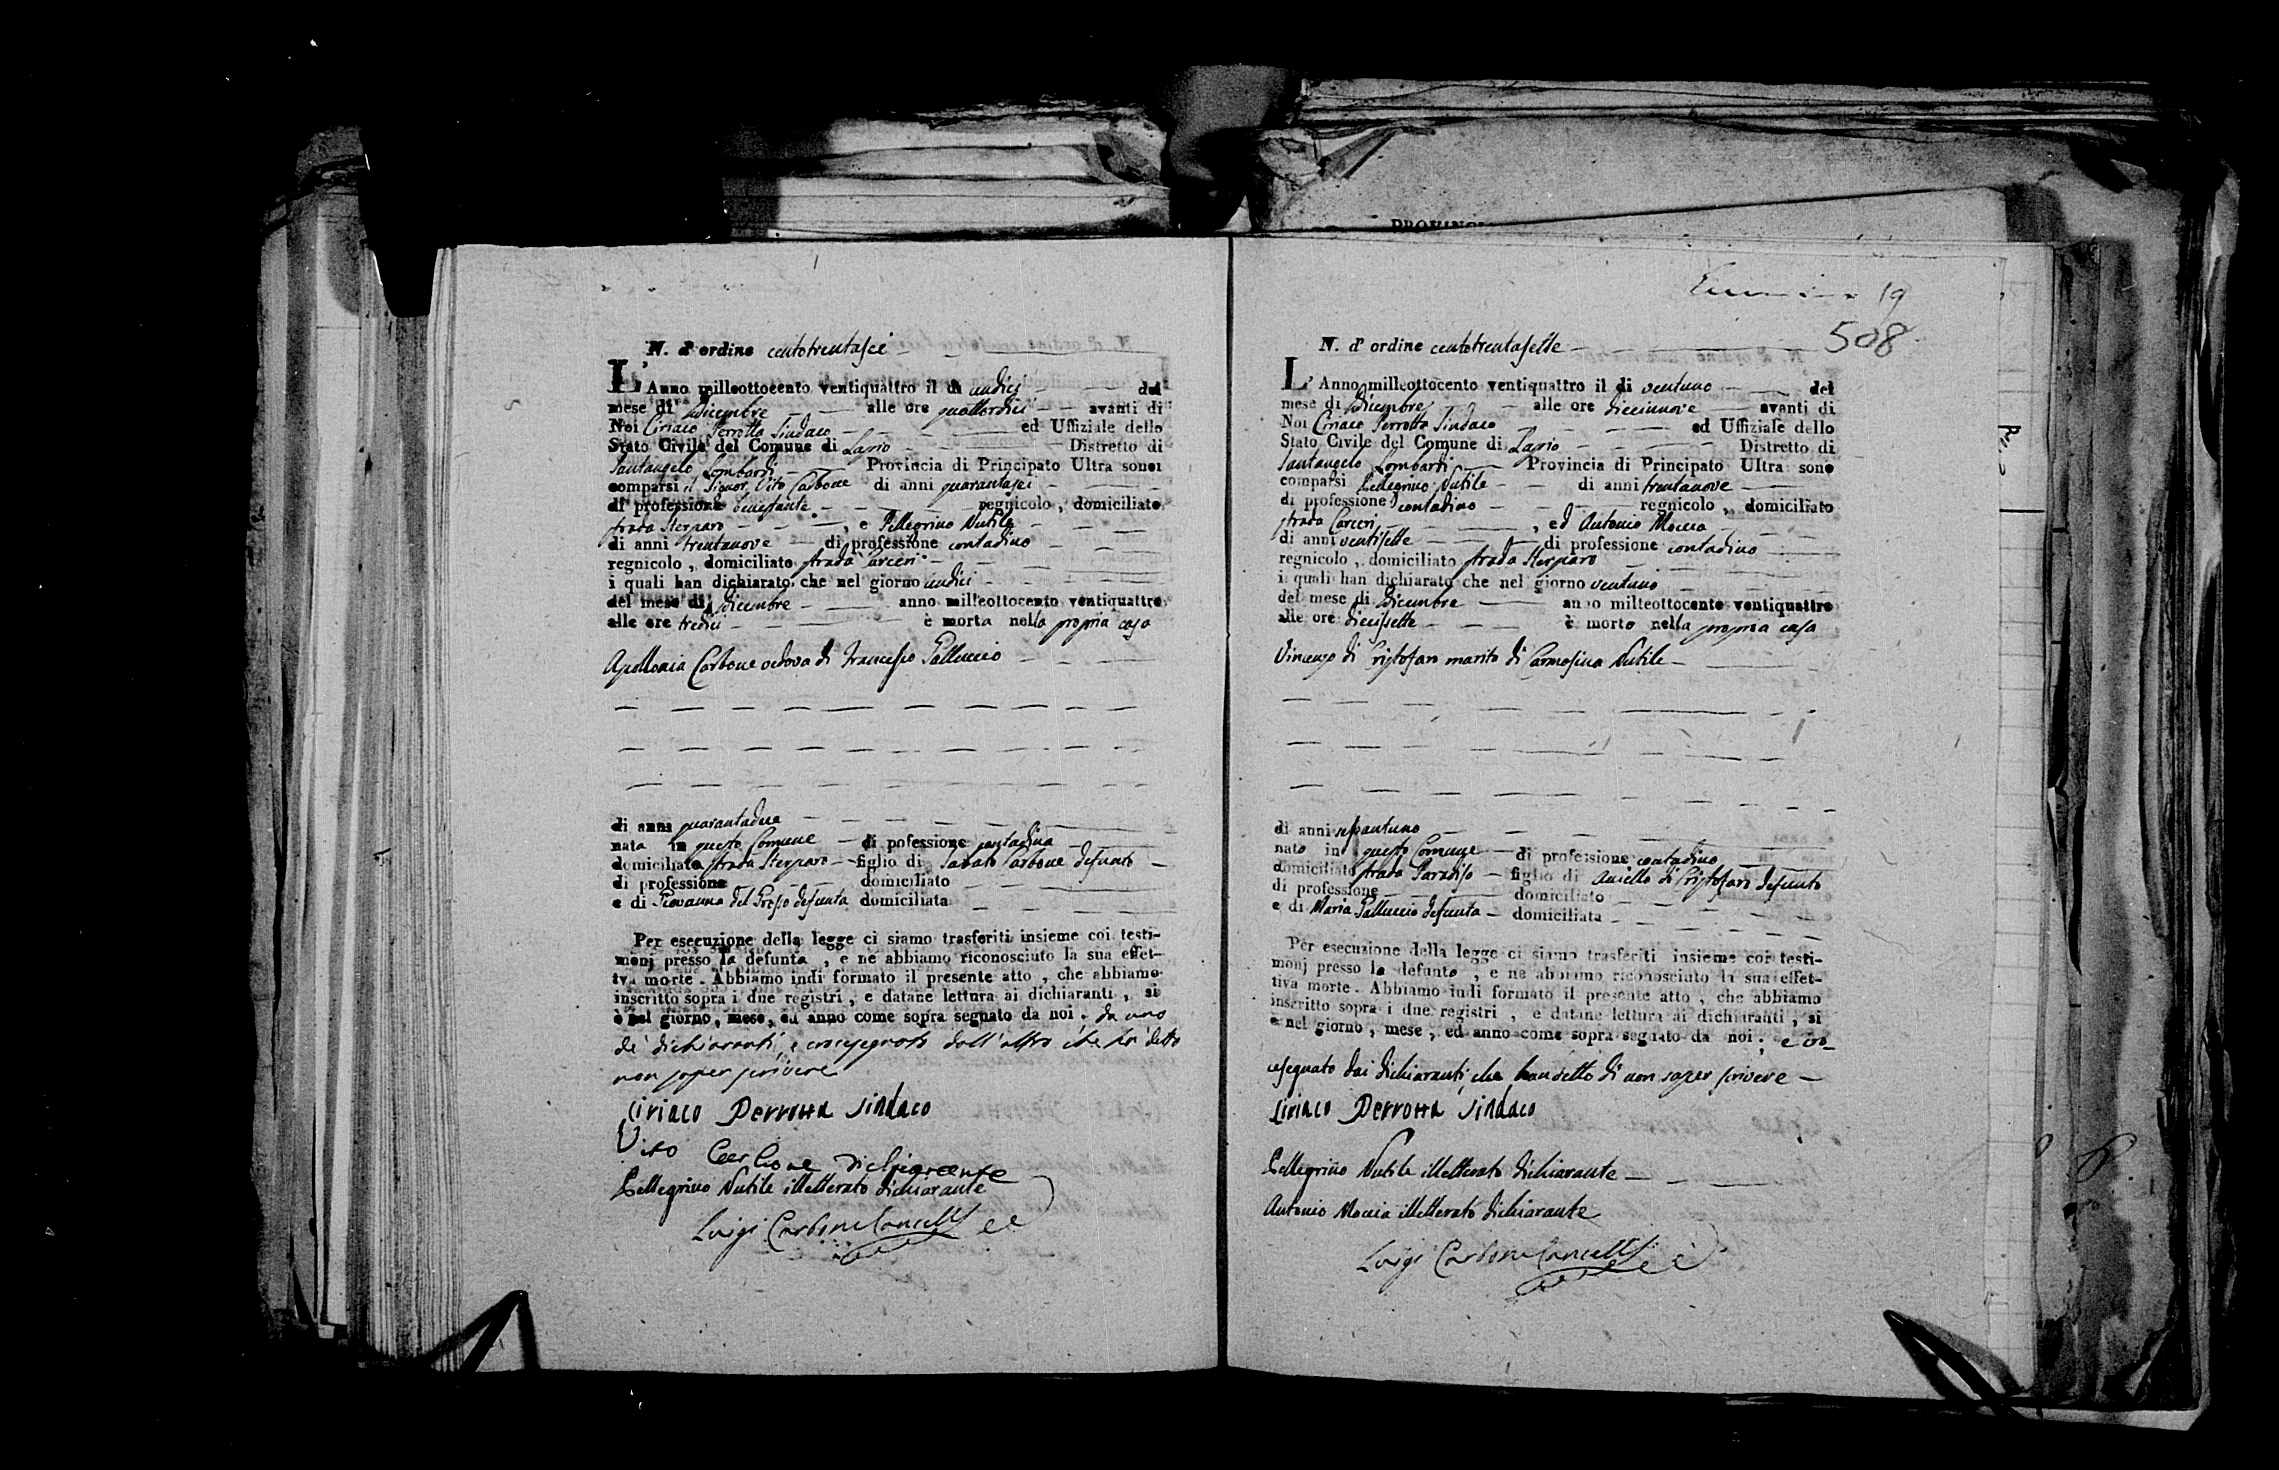 PROVINCI
N. d'ordine centotrentasei
L'Anno milleottocento ventiquattro il dì undici del
mese di Dicembre alle ore quattordici avanti di
Noi Ciriaco Perrotta Sindaco ed Uffiziale dello
Stato Civile del Comune di Lapio Distretto di
Santangelo Lombardi Provincia di Principato Ultra sono
comparsi il Signor Vito Carbone di anni quarantasei
di professione benestante regnicolo, domiciliato
strada Sterparo, e Pellegrino Nutile
di anni trentanove di professione contadino
regnicolo, domiciliato strada Carceri
i quali han dichiarato che nel giorno undici
del mese di Dicembre anno milleottocento ventiquattro
alle ore tredici è morta nella propria casa
Apollonia Carbone vedova di Francesco Galluccio
di anni quarantadue
nata in questo Comune di pofessione contadina
domiciliata strada Sterparo figlio di Sabato Carbone defunto
di professione domiciliato
e di Giovanna del Grosso defunta domiciliata
Per esecuzione della legge ci siamo trasferiti insieme coi testi-
monj presso la defunta, e ne abbiamo riconosciuto la sua effet-
tva morte. Abbiamo indi formato il presente atto, che abbiamo
inscritto sopra i due registri, e datane lettura ai dichiaranti, si
è nel giorno, mese, ed anno come sopra segnato da noi, da uno
de' dichiaranti, e crocesegnato dall'altro che ha detto
non saper scrivere
Ciriaco Perrotta Sindaco
Vito Carbone dichiarante
Pellegrino Nutile illetterato dichiarante
Luigi Carbone Cancell.
19
508
N. d'ordine centotrentasette
L'Anno milleottocento ventiquattro il dì ventuno del
mese di Dicembre alle ore diecinnove avanti di
Noi Ciriaco Perrotta Sindaco ed Uffiziale dello
Stato Civile del Comune di Lapio Distretto di
Santangelo Lombardi Provincia di Principato Ultra sono
comparsi Pellegrino Nutile di anni trentanove
di professione contadino regnicolo, domiciliato
strada Carceri, ed Antonio Moccia
di anni ventisette di professione contadino
regnicolo, domiciliato strada Sterparo
i quali han dichiarato che nel giorno ventuno
del mese di Dicembre anno milleottocento ventiquattro
alle ore diecisette è morto nella propria casa
Vincenzo di Cristofaro marito di Carmosina Nutile
di anni
nato in questo Comune di professione contadino
domiciliato strada Paradiso figlio di Aniello di Cristofaro defunto
di professione domiciliato
e di Maria Galluccio defunta domiciliata
Per esecuzione della legge ci siamo trasferiti insieme coi testi-
monj presso lo defunto, e ne abbiamo riconosciuto la sua effet-
tiva morte. Abbiamo indi formato il presente atto, che abbiamo
inscritto sopra i due registri, e datane lettura ai dichiaranti, si
è nel giorno, mese, ed anno come sopra segnato da noi, e cro-
cesegnato dai dichiaranti, che han detto di non saper scrivere
Ciriaco Perrotta Sindaco
Pellegrino Nutile illetterato dichiarante
Antonio Moccia illetterato dichiarante
Luigi Carbone Cancell.